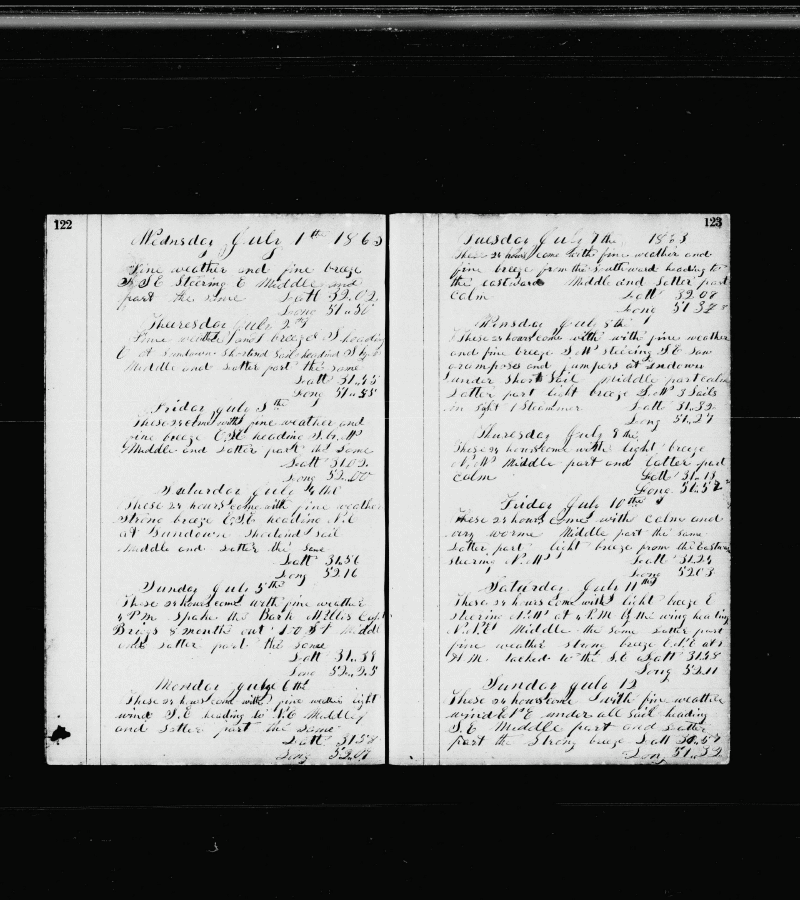 122
Wednsday July 1th 1863
Fine weather and fine breeze
S E Steering E Middle and
part the same Latt 32.02
Long 51..56
Thuresday July 2
Fine weather and breeze S heading
E at Sundown Shortend Sail headind
Middle and Latter part the same
Latt 31..45
Long 51..55
Friday July 3th
These 24 come with fine weather and
fine breeze E.S.E heading
Middle and Latter part the same
Latt 31.02
Long 52..00
Saturday July 4 the
These 24 hours come with fine weather
Strong breeze E.S.E heading N.E
at Sundown Shortend Sail
Middle and Latter the same
Latt 31.56
Long 52 16
Sunday July 5th
These 24 hours come with fine weather
4 P m Spoke the Bark Willis Capt
Brigs 8 months out
and Latter part the same
Latt 31..39
Long 52..25
Monday July 6 the
These 24 hours come with fine weather light
wind S.E heading to N.E Middle
and Latter part the same
Latt 31.58
Long 52.07
123
Tuesday July 7 the 1863
These 24 hours come with fine weather and
fine breeze from the Southward heading to
the eastward Middle and Latter part
Calm Latt 32.07
Long 51 37
Winsday July 8th
These 24 hours come with with fine weather
and fine breeze S.W steering S.E Saw
grampses and jumpers at Sndown
under Short Sail Middle part calm
Latter part light breeze S.W 3 Sails
in Sight 1 Steammer Latt 31..32
Long 51..27
Thursday July 9 the
These 24 hours come with light breeze
N.W Middle part and latter part
Calm Latt 31..13
Long 51..52
Friday July 10th
These 24 hours come with Calm and
very worme Middle part the same
Latter part light breeze from the Eastwar
stearing N.W Latt 31..24
Long 52 03
Saturday July 11th
These 24 hours come with light breeze E
stering N.W at 4 P.M By the wing heading
N.N.E Middle the same Latter part
fine weather strong breeze E.N.E at
A M tacked to the S.E Latt 31.38
Long 52 11
Sunday July 12
These 24 hours come with fine weather
wind E N E under all Sail heading
S.E Middle part and Latter
part the Strong breeze Latt 30..57
Long 51..32